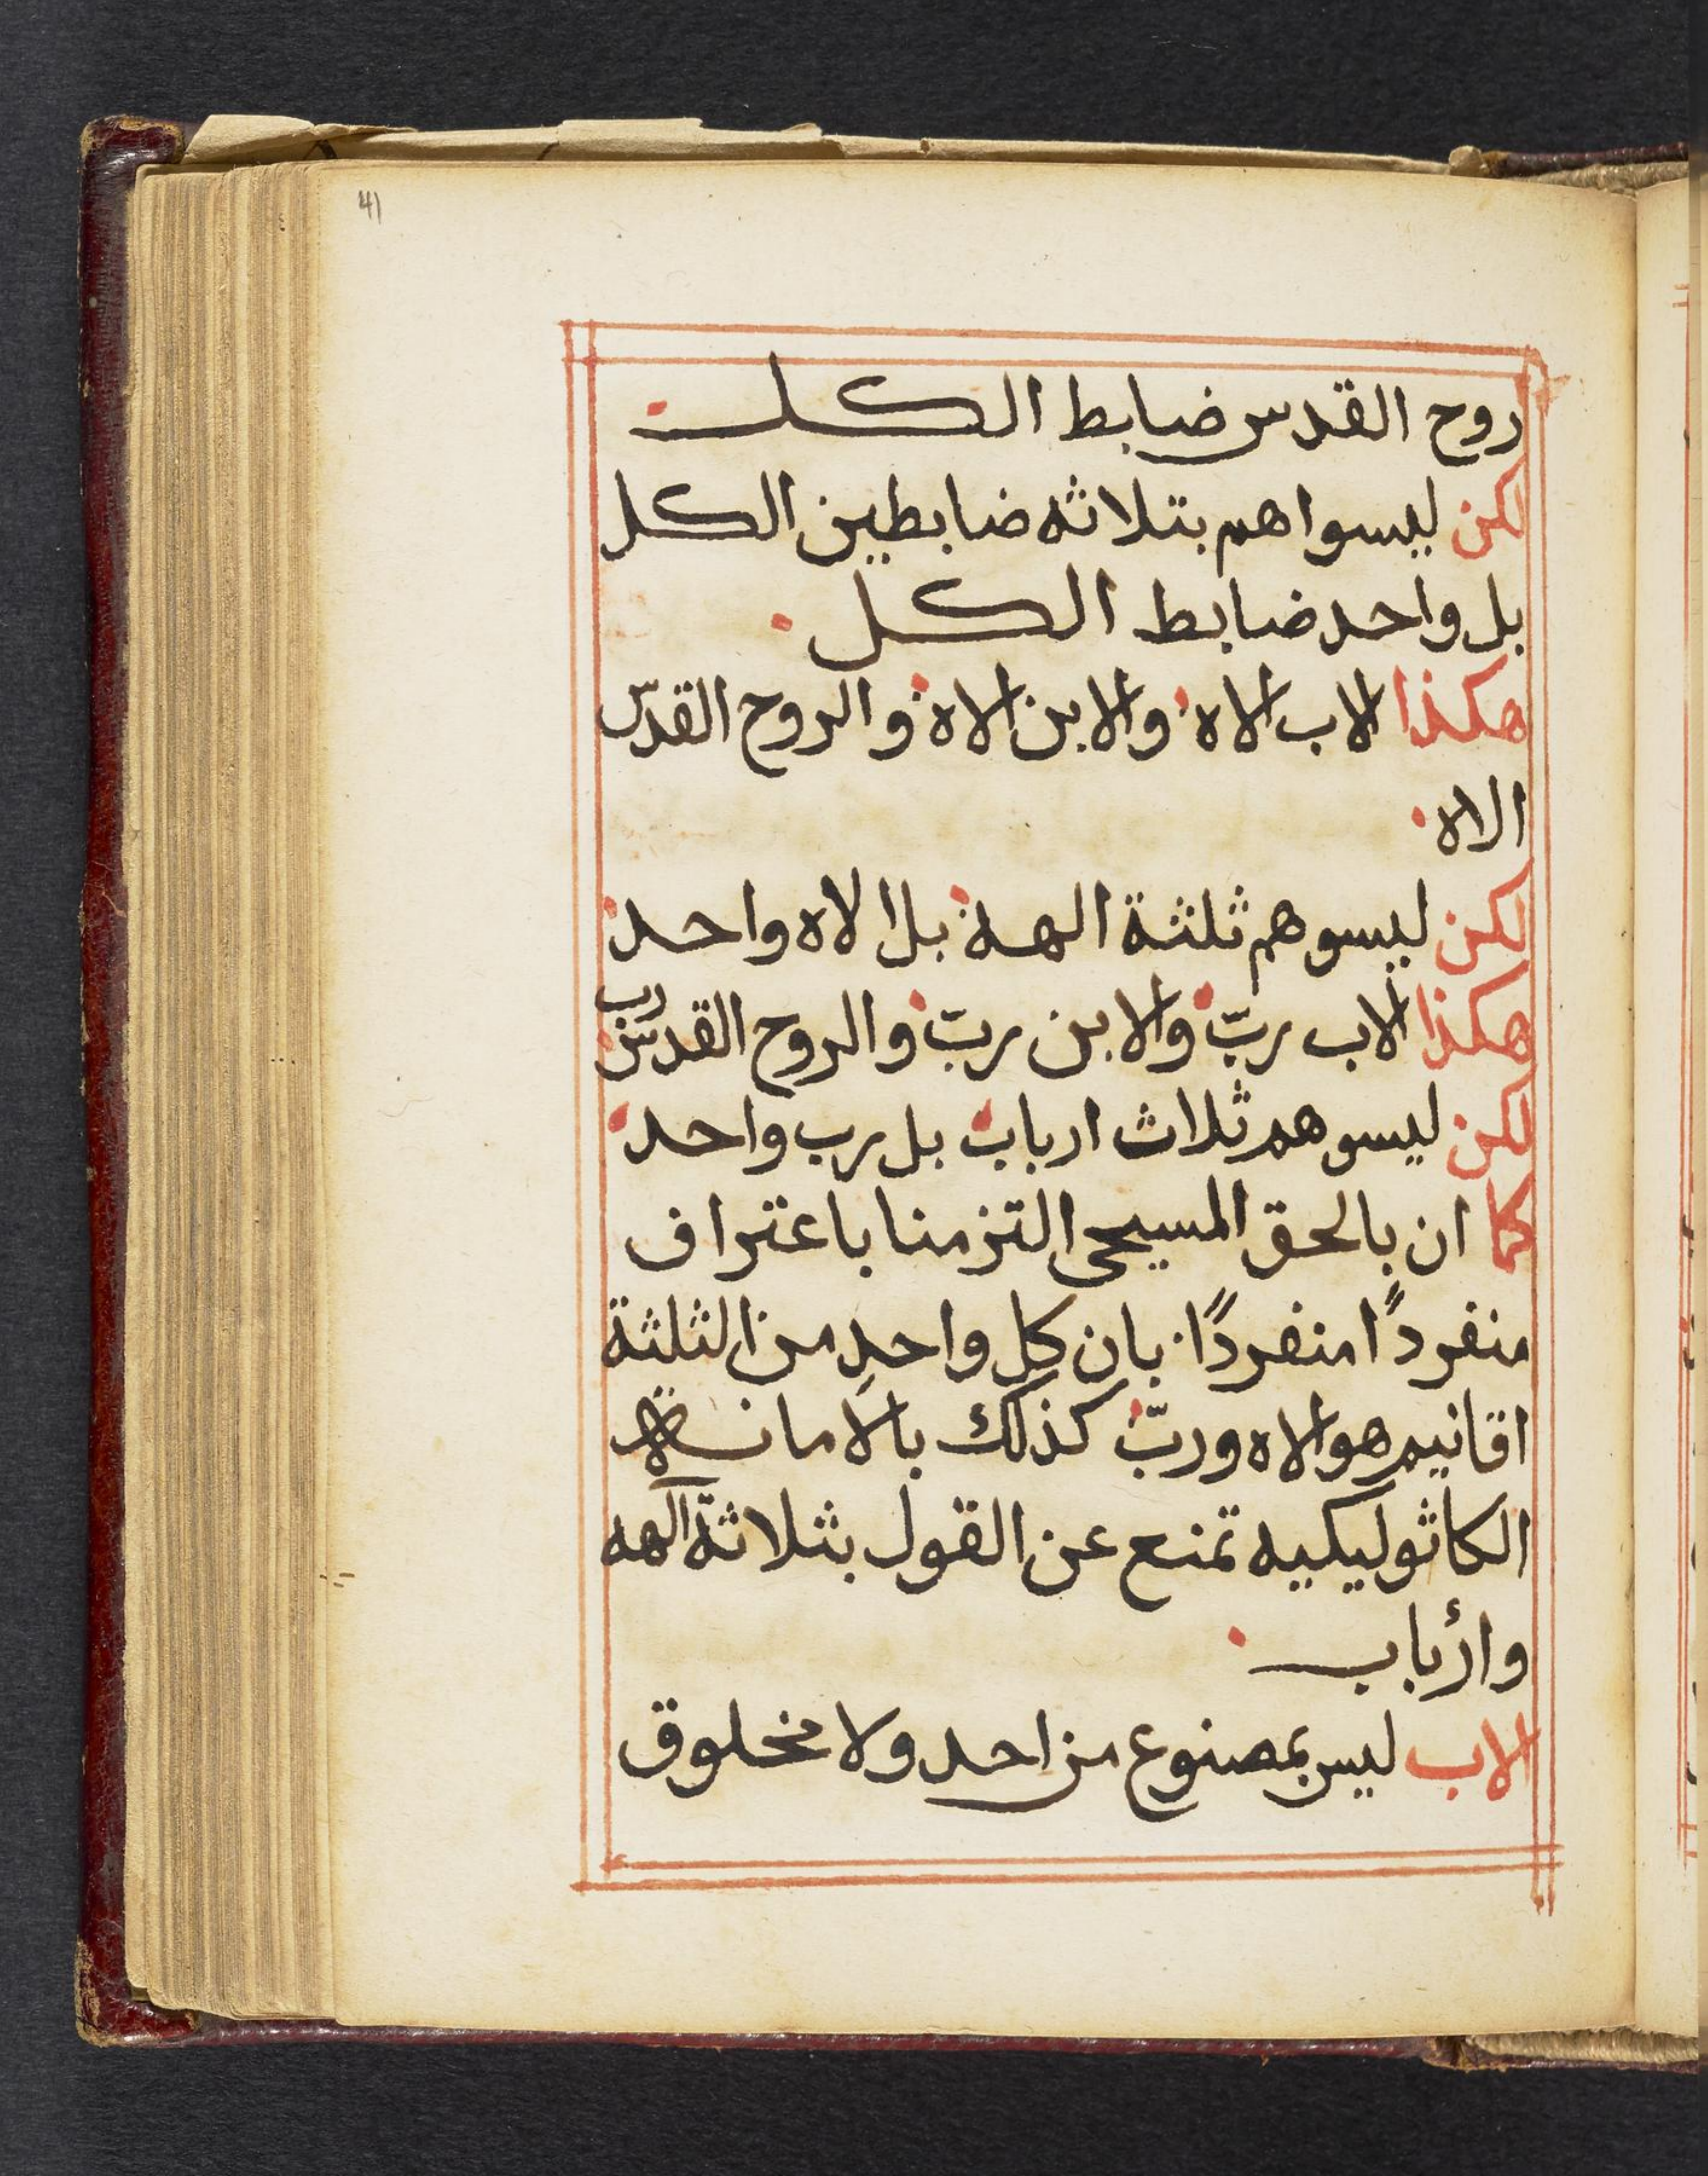 41
روح القدس ضابط الكل
لكن ليسوا هم بتلاثه ضابطين الكل
بل واحد ضابط الكل
هكذا الاب الاه والابن الاه والروح القدّس
الاه
لكن ليسوهم ثلثة الهة بل الاه واحد
هكذا الاب ربّ والابن ربّ والروح القدسّ رب
لكن ليسوهم ثلاث ارباب بل رب واحد
كما ان بالحق المسيحى التزمنا باعتراف
منفردًا منفردًا بان كل واحدٍ من الثلثة
اقانيم هو الاه وربّ كذلك بالامانة
الكاثوليكيه تمنع عن القول بثلاثة آلهه
وأرباب
الاب ليس بمصنوع من احد ولا مخلوق